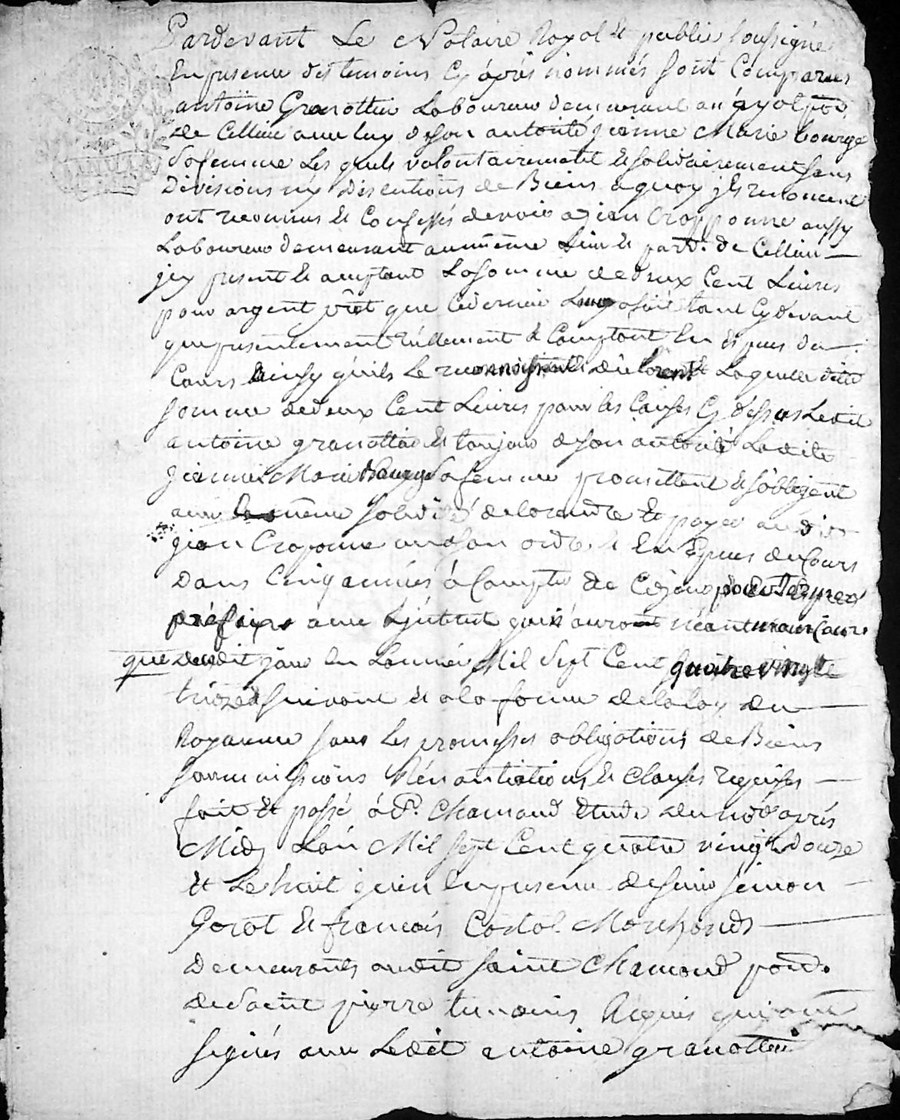 Pardevant Le Notaire Royal et public soussigné
En presence des temoins Cy après nommés sont Comparus
antoine Granottier Laboureur demeurant au
de Cellieu avec luy de son autorité jeanne Marie bourge
sa femme Les quels volontairement et solidairement sans
divisions ny discutions de Biens a quoy ils renoncent
ont reconnus et Confessés devoir a jean Crapponne aussy
Laboureur demeurant au même Lieu et parr. de Cellieu
jcy present et acceptant La somme de deux Cent Livres
pour argent prêt que ce dernier Leur a fait tant Cy devant
que presentement réellement et Comptant En Especes du
Cours ainsy qu'ils Le reconnoissent et declarent Laquelle ditte
somme de deux Cent Livres pour les Causes Cy dessus Ledit
antoine granottier et toujour de son autorité Ladite
jeanne Marie bourge sa femme promettent et s'obligent
avec la même solidité de la rendre et payer audit
jean Craponne ou a son ordre et En Especes du Cours
Dans Cinq années à Compter de Ce jour pour terme
préfixe avec Lintérêt qui n'aura néantmoins Cours
que dudit jour En Lannée Mil Sept Cent quatre vingt
treize suivant et a la forme de la loy du
Royaume sous les promesses obligations de Biens
soumissions Rénontiations et clauses requises
fait et passé à St. Chamond Etude du no.re après
Midy L'an Mil sept Cent quatre vingt douze
et Le huit juin En presence de sieur simon
Gorot et francois Costal Marchands
demeurants audit saint Chamond parr.
de Saint pierre temoins Requis qui ont
signés avec Ledit antoine granottier